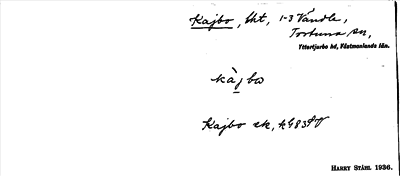 Kajbo, tht, 1-3 Vändle,
Tortuna sn,
Yttertjurbo hd, Västmanlands län.
kàjbo
Kajbo ek, k 483
HARRY STÅHL 1936.